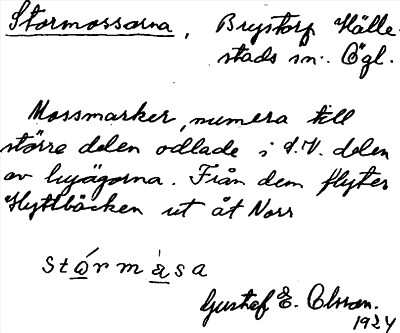 Stormossorna, Brystorp Hälle-
stads sn. Ögl.
Mossmarker, numera till
större delen odlade i S.V. delen
av byägorna. Från dem flyter
Hyttbäcken ut åt Norr
stórmàsa
Gustaf E. Olsson.
1924